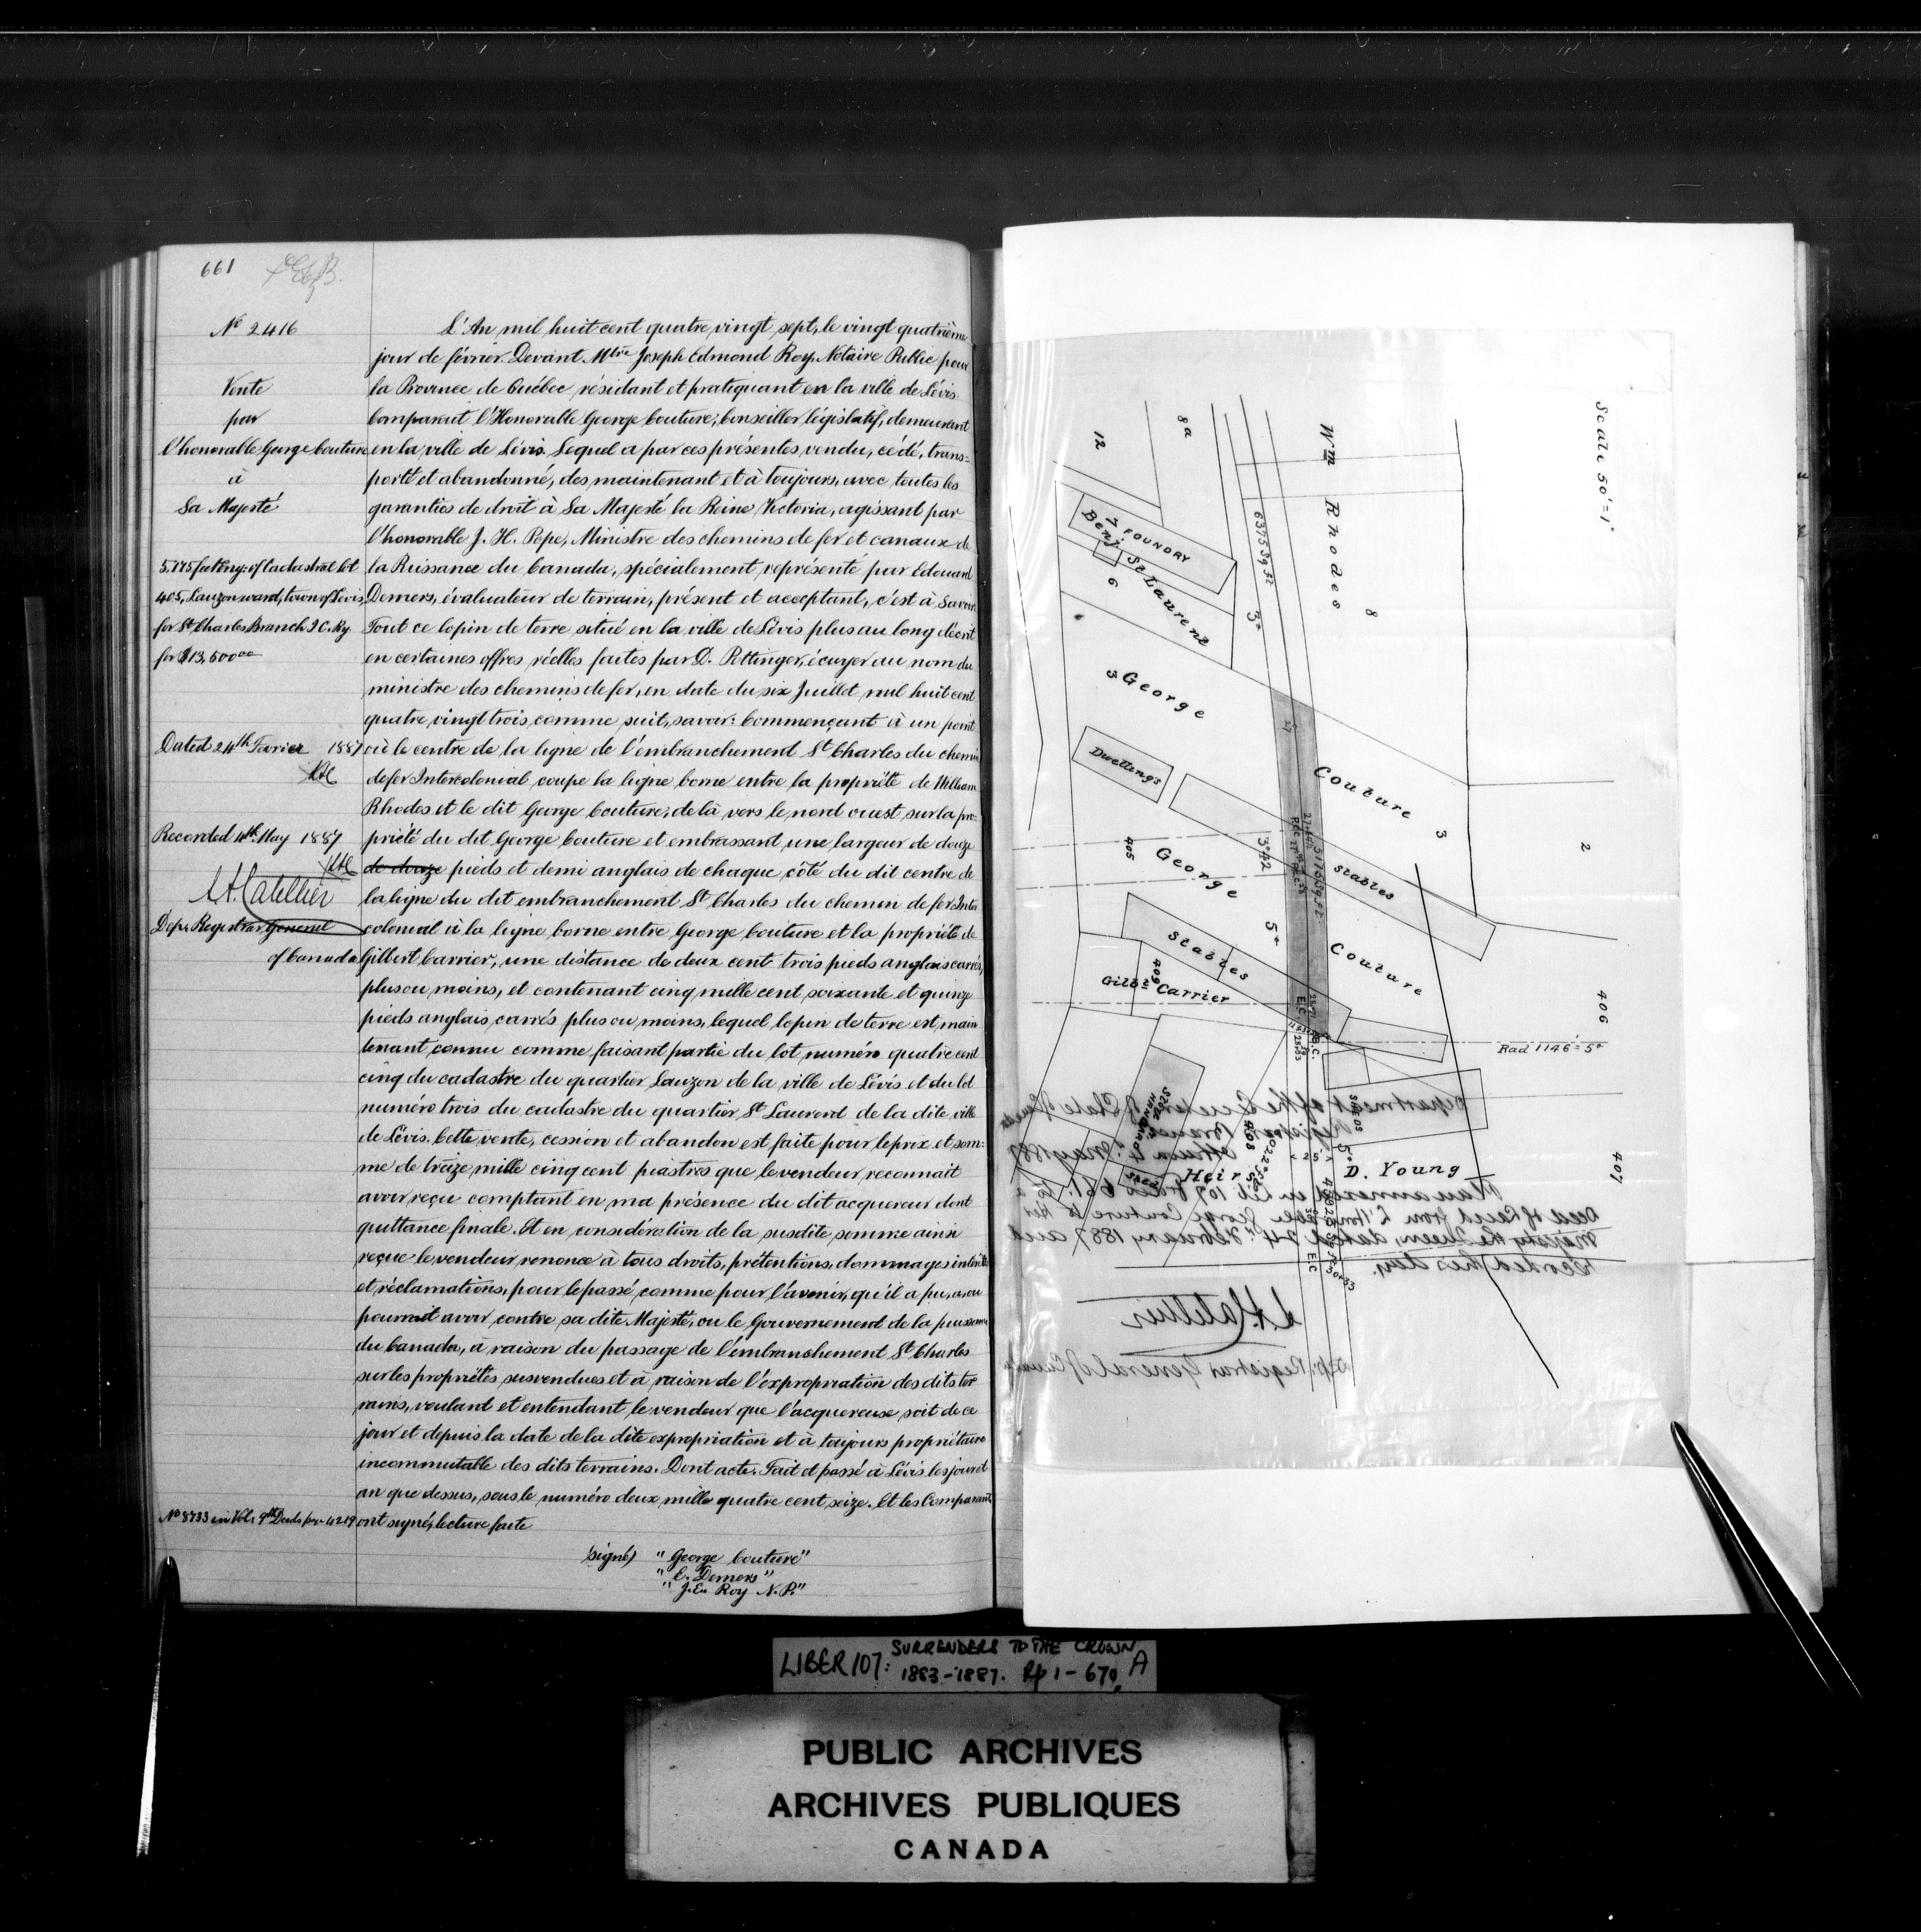 661
No 2416
Vente
par
l'honorable George Couture
à
Sa Majesté
5,175 feet Eng: of Cadastral lot
405, Lauzon ward, town of Levis,
for St Charles Branch I.C. Ry
for $13,500.00
Dated 24th Fevrier 1887
Recorded 4th May 1887
Depy Registrar General
of Canada
No 8733 in Vol: 9th Deeds
L'An mil huit cent quatre vingt sept, le vingt quatrième
jour de février. Devant Mtre Joseph Edmond Roy, Notaire Public pour
la Province de Québec, résidant et pratiquant en la ville de Lévis
Comparaît l'Honorable George Couture, Conseiller législatif, demeurant
en la ville de Lévis. Lequel a par ces présentes vendu, cédé, trans-
porté et abandonné, des maintenant et à toujours, avec toutes les
garanties de droit à Sa Majesté la Reine Victoria, agissant par
l'honorable J. H. Pope, Ministre des chemins de fer et canaux de
la Puissance du Canada, spécialement représenté par Edouard
Demers, évaluateur de terrain, présent et acceptant, c'est à Savoir
Tout ce lopin de terre situé en la ville de Lévis plus au long décrit
en certaines offres réelles faites par D. Pottinger, écuyer au nom du
ministre des chemins de fer, en date du six Juillet mil huit cent
quatre vingt trois, comme suit, savoir: Commençant à un point
où le centre de la ligne de l'embranchement St Charles du chemin
de fer Intercolonial coupe la ligne borne entre la propriété de William
Rhodes et le dit George Couture, de là vers le nord ouest sur la pro-
priété du dit George Couture et embrassant une largeur de douze
de douze pieds et demi anglais de chaque côté du dit centre de
la ligne du dit embranchement St Charles du chemin de fer Inter
colonial à la ligne borne entre George Couture et la propriété de
Gilbert Carrier, une distance de deux cent trois pieds anglais carrés,
plus ou moins, et contenant cinq mille cent soixante et quinze
pieds anglais carrés plus ou moins, lequel lopin de terre est main
tenant connu comme faisant partie du lot numéro quatre cent
cinq du cadastre du quartier Lauzon de la ville de Lévis et du lot
numéro trois du cadastre du quartier St Laurent de la dite ville
de Lévis. Cette vente, cession et abandon est faite pour le prix et som-
me de treize mille cinq cent piastres que le vendeur reconnait
avoir reçu comptant en ma présence du dit acquereur dont
quittance finale. Et en considération de la susdite somme ainsi
reçue le vendeur renonce à tous droits, prétentions, dommages intérêts
et réclamations, pour le passé comme pour l'avenir, qu'il a pu, a, ou
pourrait avoir contre sa dite Majesté, ou le Gouvernement de la puissance
du Canada, à raison du passage de l'embranchement St Charles
sur les propriétés susvendues et à raison de l'expropriation des dits ter
rains, voulant et entendant le vendeur que l'acquereuse soit de ce
jour et depuis la date de la dite expropriation et à toujours propriétaire
incommutable des dits terrains. Dont acte. Fait et passé à Lévis les jour et
an que dessus, sous le numéro deux mille quatre cent seize. Et les Comparants
ont signé, lecture faite
(signé) "George Couture"
"E. Demers"
"J. Ed. Roy N.P."
Scale 50'=1"
12
8a
Wm Rhodes
8
6375 Sq Ft
7 FOUNDRY
Benj. St Laurent
6
3 George
Couture
3
2
Dwellings
Stables
405
George
Couture
3°42
5170 Sq Ft
Stables
409
Gilbt Carrier
406
Rad 1146'=5°
SHEDS
Shed
408
Heirs
D. Young
407
Department of the Secretary of State of Canada
Registrar Branch
Ottawa 4th May 1887
Plan annexed in Lib 107 Folio 661 to a
Deed of Land from L'Honorable George Couture to Her
Majesty the Queen, dated 24th February 1887 and
recorded this day.
Depy Registrar General of Canada
LIBER 107: SURRENDERS TO THE CROWN
1883-1887. Pp 1-670 A
PUBLIC ARCHIVES
ARCHIVES PUBLIQUES
CANADA